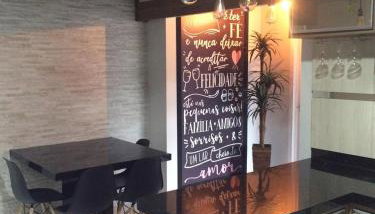 ter
FÉ
e nunca deixar
de acreditar
A
FELICIDADE
está nas
pequenas coisas!
FAMÍLIA • AMIGOS
SORRISOS • &
UM LAR cheio de
amor